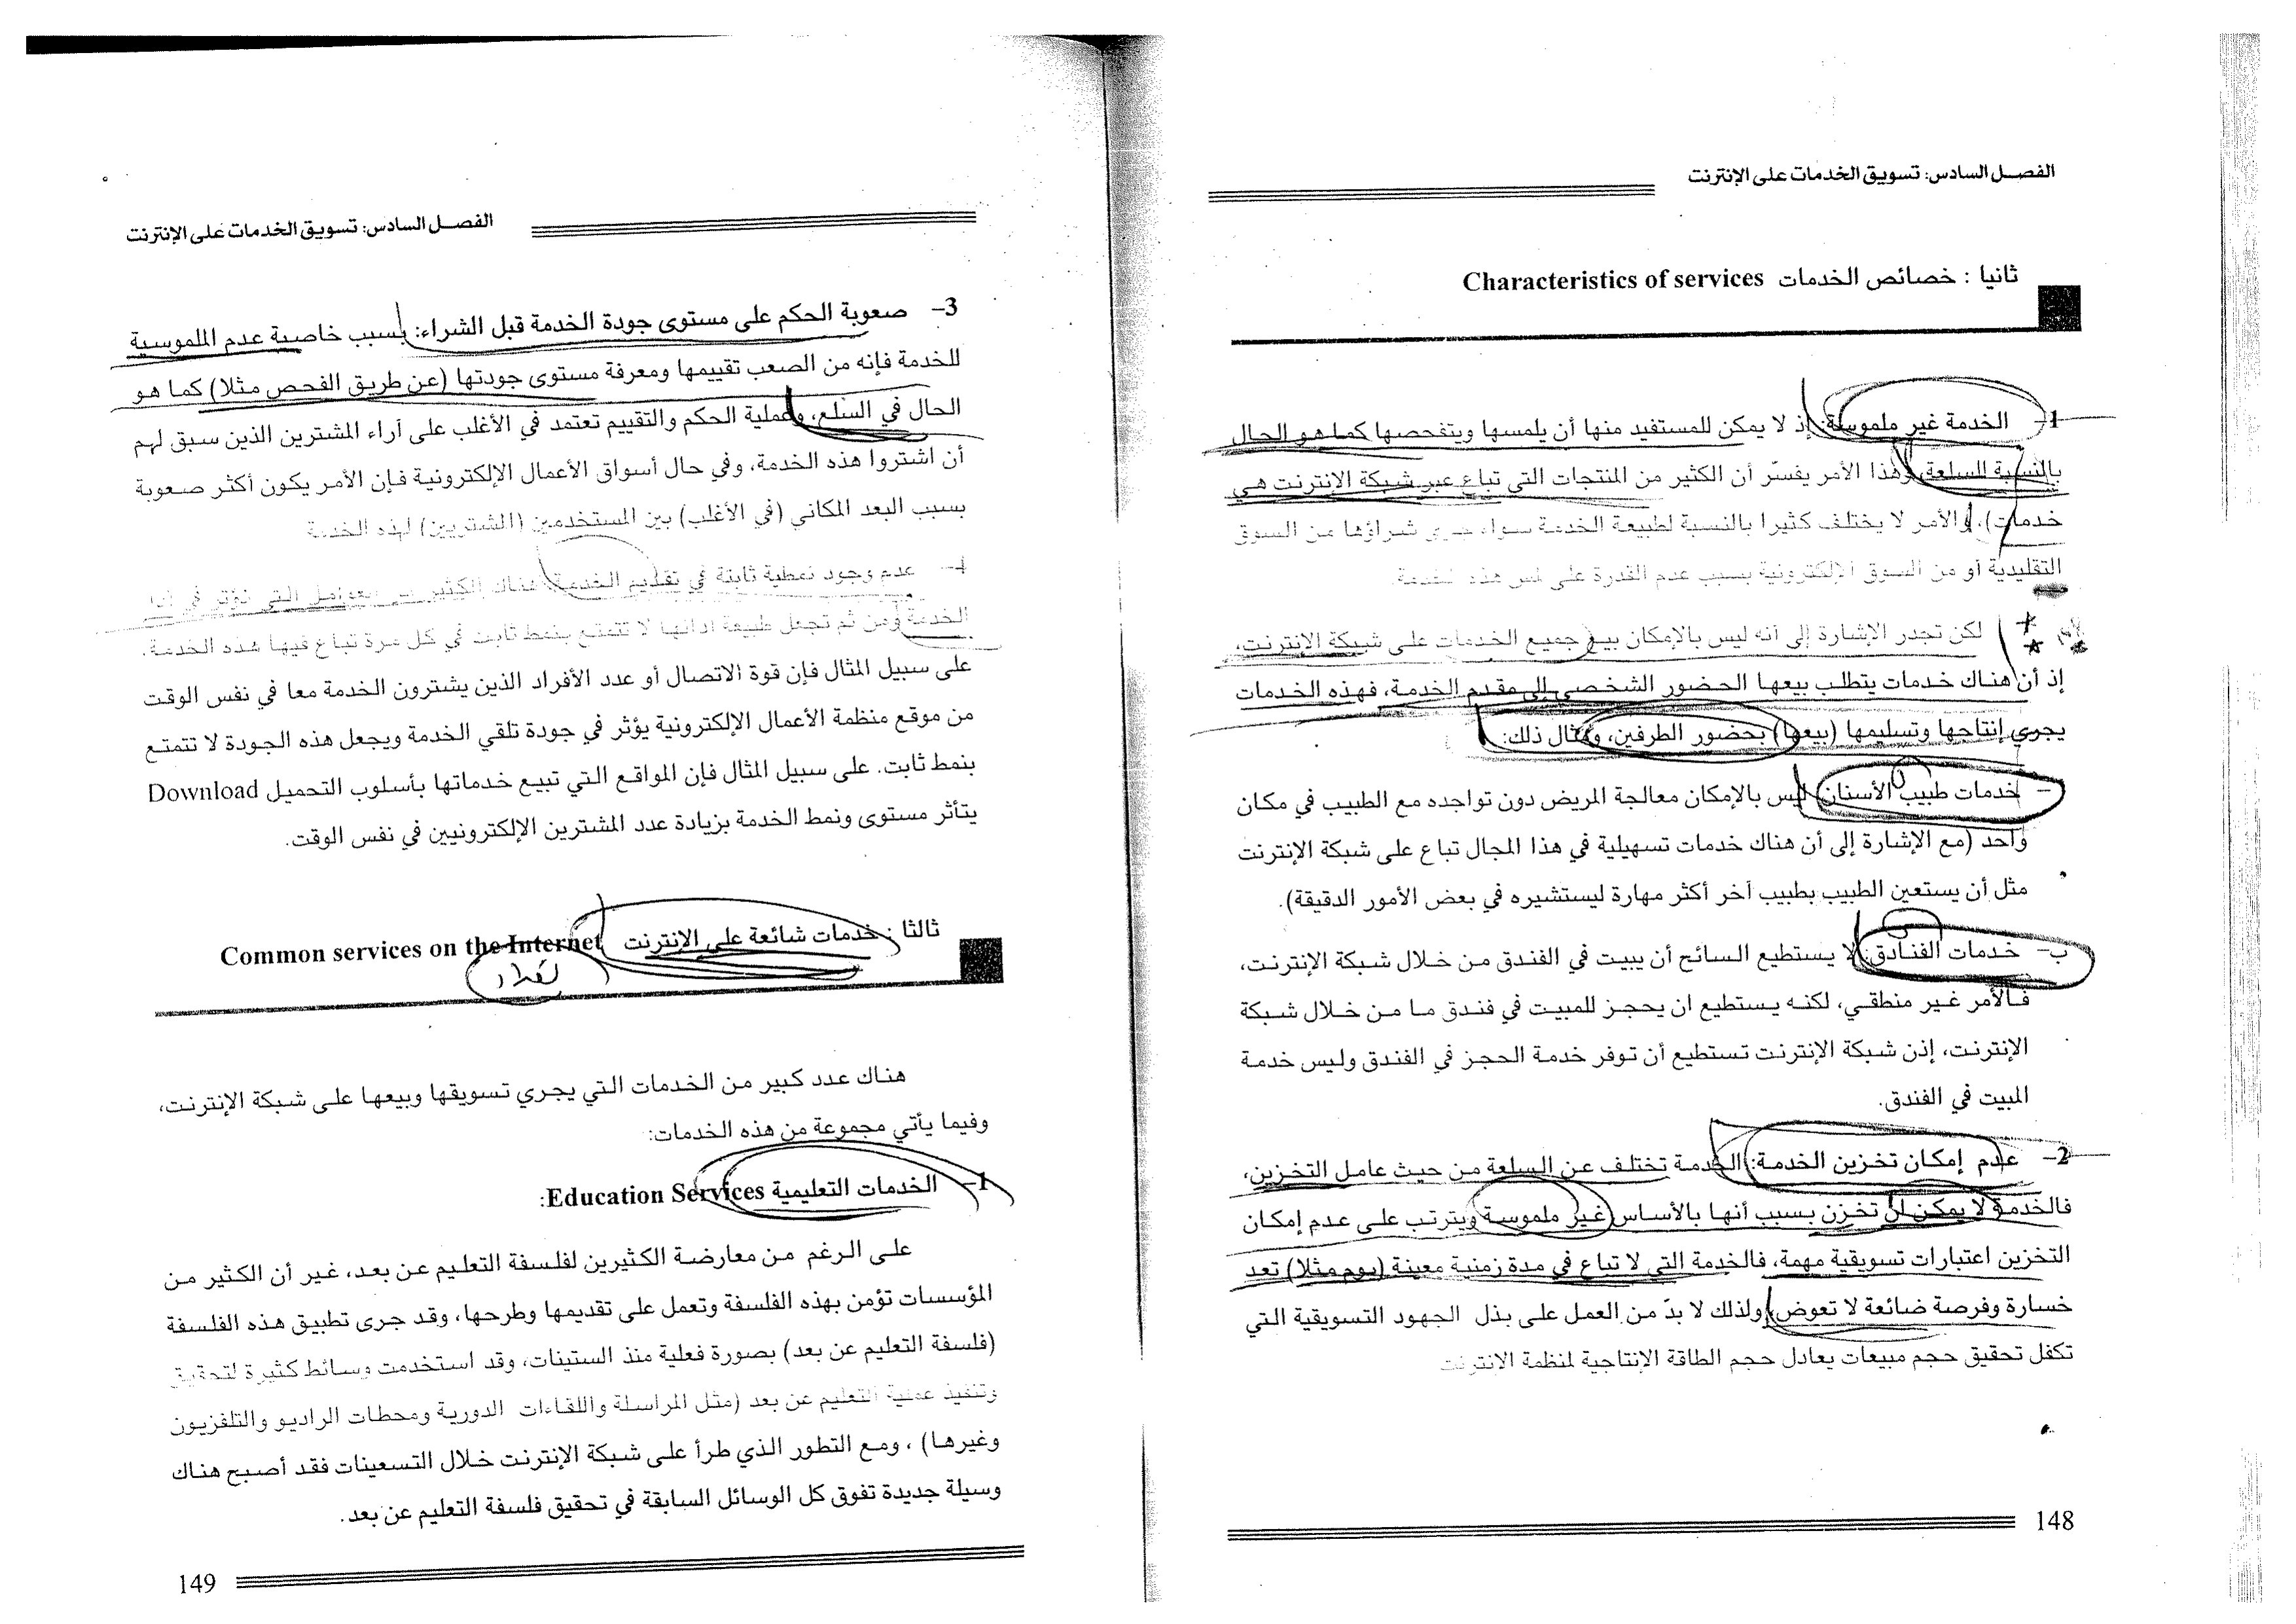 الفصل السادس: تسويق الخدمات على الإنترنت
ثانيا : خصائص الخدمات Characteristics of services
1- الخدمة غير ملموسة: إذ لا يمكن للمستفيد منها أن يلمسها ويتفحصها كما هو الحال
بالنسبة للسلعة (وهذا الأمر يفسّر أن الكثير من المنتجات التي تباع عبر شبكة الإنترنت هي
خدمات). والأمر لا يختلف كثيرا بالنسبة لطبيعة الخدمة سواء جرى شراؤها من السوق
التقليدية أو من السوق الإلكترونية بسبب عدم القدرة على لمس هذه الخدمة.
لكن تجدر الإشارة إلى أنه ليس بالإمكان بيع جميع الخدمات على شبكة الإنترنت،
إذ أن هناك خدمات يتطلب بيعها الحضور الشخصي إلى مقدم الخدمة، فهذه الخدمات
يجري إنتاجها وتسليمها (بيعها) بحضور الطرفين، ومثال ذلك:
أ- خدمات طبيب الأسنان: ليس بالإمكان معالجة المريض دون تواجده مع الطبيب في مكان
واحد (مع الإشارة إلى أن هناك خدمات تسهيلية في هذا المجال تباع على شبكة الإنترنت
مثل أن يستعين الطبيب بطبيب آخر أكثر مهارة ليستشيره في بعض الأمور الدقيقة).
ب- خدمات الفنادق: لا يستطيع السائح أن يبيت في الفندق من خلال شبكة الإنترنت،
فالأمر غير منطقي، لكنه يستطيع ان يحجز للمبيت في فندق ما من خلال شبكة
الإنترنت، إذن شبكة الإنترنت تستطيع أن توفر خدمة الحجز في الفندق وليس خدمة
المبيت في الفندق.
2- عدم إمكان تخزين الخدمة: الخدمة تختلف عن السلعة من حيث عامل التخزين،
فالخدمة لا يمكن ان تخزن بسبب أنها بالأساس غير ملموسة ويترتب على عدم إمكان
التخزين اعتبارات تسويقية مهمة، فالخدمة التي لا تباع في مدة زمنية معينة (يوم مثلا) تعد
خسارة وفرصة ضائعة لا تعوض، ولذلك لا بدّ من العمل على بذل الجهود التسويقية التي
تكفل تحقيق حجم مبيعات يعادل حجم الطاقة الإنتاجية لمنظمة الإنترنت
148
الفصل السادس: تسويق الخدمات على الإنترنت
3- صعوبة الحكم على مستوى جودة الخدمة قبل الشراء: بسبب خاصية عدم الملموسية
للخدمة فإنه من الصعب تقييمها ومعرفة مستوى جودتها (عن طريق الفحص مثلا) كما هو
الحال في السلع، وعملية الحكم والتقييم تعتمد في الأغلب على آراء المشترين الذين سبق لهم
أن اشتروا هذه الخدمة، وفي حال أسواق الأعمال الإلكترونية فإن الأمر يكون أكثر صعوبة
بسبب البعد المكاني (في الأغلب) بين المستخدمين (المشتريين) لهذه الخدمة
4- عدم وجود نمطية ثابتة في تقديم الخدمة: هناك الكثير من العوامل التي تؤثر في
الخدمة ومن ثم تجعل طبيعة ادائها لا تتمتع بنمط ثابت في كل مرة تباع فيها هذه الخدمة.
على سبيل المثال فإن قوة الاتصال أو عدد الأفراد الذين يشترون الخدمة معا في نفس الوقت
من موقع منظمة الأعمال الإلكترونية يؤثر في جودة تلقي الخدمة ويجعل هذه الجودة لا تتمتع
بنمط ثابت. على سبيل المثال فإن المواقع التي تبيع خدماتها بأسلوب التحميل Download
يتأثر مستوى ونمط الخدمة بزيادة عدد المشترين الإلكترونيين في نفس الوقت.
ثالثا : خدمات شائعة على الإنترنت Common services on the Internet
هناك عدد كبير من الخدمات التي يجري تسويقها وبيعها على شبكة الإنترنت،
وفيما يأتي مجموعة من هذه الخدمات:
1- الخدمات التعليمية Education Services:
على الرغم من معارضة الكثيرين لفلسفة التعليم عن بعد، غير أن الكثير من
المؤسسات تؤمن بهذه الفلسفة وتعمل على تقديمها وطرحها، وقد جرى تطبيق هذه الفلسفة
(فلسفة التعليم عن بعد) بصورة فعلية منذ الستينات، وقد استخدمت وسائط كثيرة لتحقيق
وتنفيذ عملية التعليم عن بعد (مثل المراسلة واللقاءات الدورية ومحطات الراديو والتلفزيون
وغيرها) ، ومع التطور الذي طرأ على شبكة الإنترنت خلال التسعينات فقد أصبح هناك
وسيلة جديدة تفوق كل الوسائل السابقة في تحقيق فلسفة التعليم عن بعد.
149